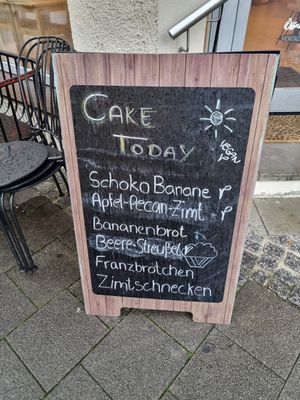 CAKE
TODAY
VEGAN
Schoko Banane
Apfel-Pecan-Zimt
Bananenbrot
Beere-Streußel
Franzbrötchen
Zimtschnecken